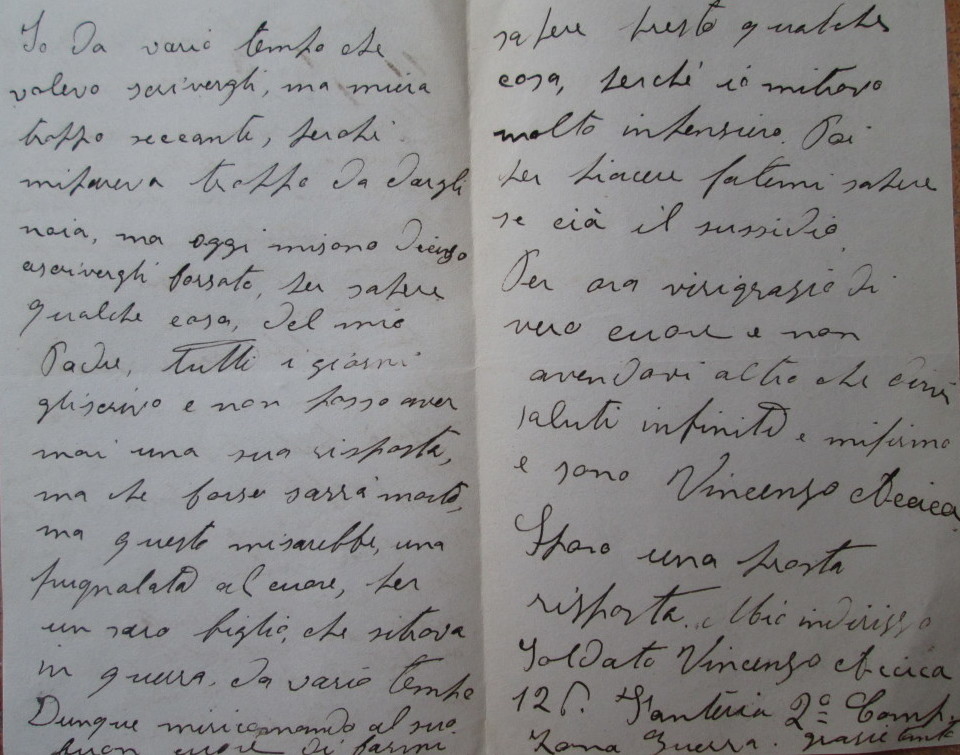 Io da vario tempo che
volevo scrivergli, ma miera
troppo seccante, perchi
mipareva troppo da dargli
noia, ma oggi misono deciso
ascrivergli forsato, per sapere
qualche cosa, del mio
Padre, tutti i giorni
gliscrivo e non posso aver
mai una sua risposta,
ma che forse sarrà morto,
ma questo misarebbe, una
pugnalata al cuore, per
un saro figlio, che sitrova
in guerra, da vario tempo
Dunque miricomando al suo
buon cuore di farmi
sapere presto qualche
cosa, perchè io mitrovo
molto inpensiero. Poi
per piacere fatemi sapere
se cià il sussidio.
Per ora virigrazio di
vero cuore e non
avendovi altro che dirvi
saluti infiniti e mifirmo
e sono Vincenzo
Spero una prosta
risposta. Mio indirisso
Soldato Vincenzo
126. Fanteria 2ª Comp.
Zona Guerra. grazie tante